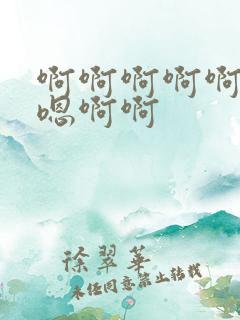 啊啊啊啊啊
嗯啊啊
徐翠華
未经同意禁止转载